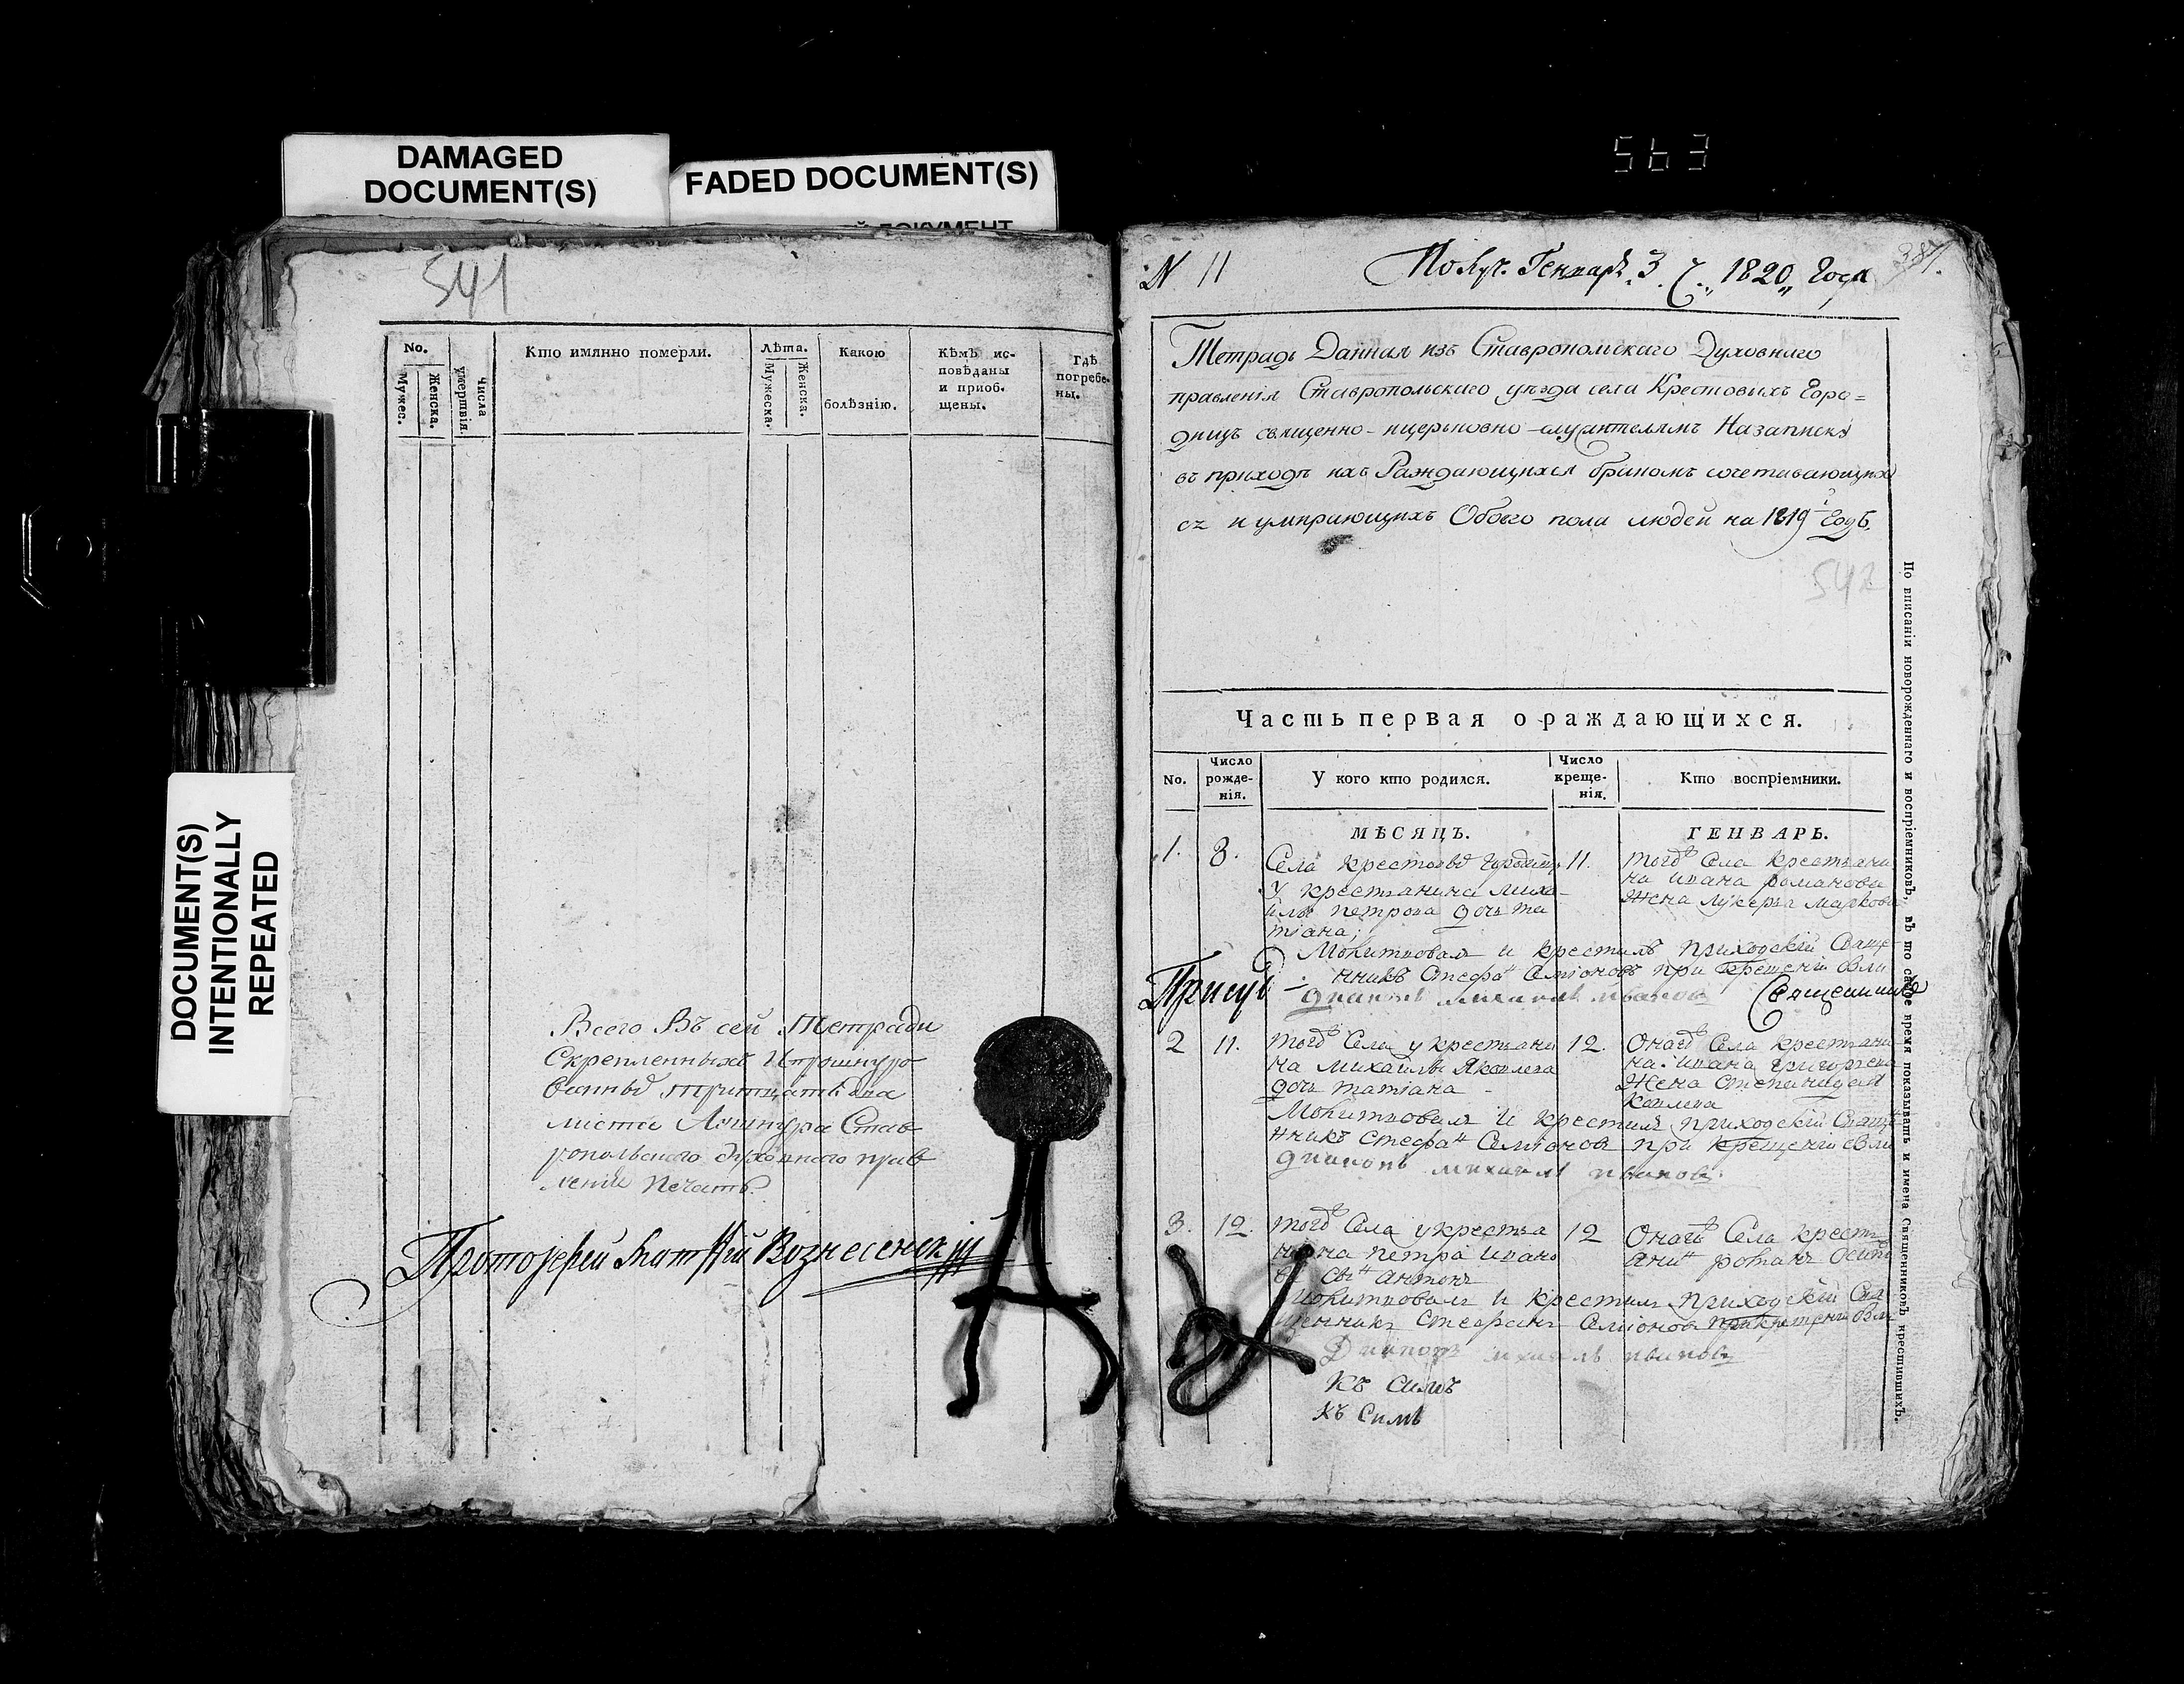 DAMAGED
DOCUMENT(S)
FADED DOCUMENT(S)
ДОКУМЕНТ
563
DOCUMENT(S)
INTENTIONALLY
REPEATED
541
No.
Мужес.
Женска.
Числа
умертвія.
Кто имянно померли.
Лѣта.
Мужеска.
Женска.
Какою
болѣзнію.
Кѣмъ ис-
повѣданы
и приоб-
щены.
Гдѣ
погребе-
ны.
Всего Въ сей Тетради
Скрепленныхъ Ипрошнуро
листа Ашнура Став
ропольского духовного прав
ления Печать.
Протоіерей Матфій Вознесенскій
N 11
Получ. Генваря 3 1820 Года
Тетрадь Данная изъ Ставропольскаго Духовнаго
правленія Ставропольскаго уѣзда села Крестовыхъ Горо=
дищъ священно-ицерьковно-служителямъ Назаписку
въ приходѣ ихъ Раждающихся бракомъ сочетавающих
ся и умирающихъ Обоего пола людей на 1819 Годъ.
542
Часть первая о раждающихся.
No.
Число
рожде-
нія.
У кого кто родился.
Число
креще-
нія.
Кто воспріемники.
МѢСЯЦЪ.
ГЕНВАРЬ.
1.
8.
Села крестовы городищь
У крестьянина миха-
илы петрова дочь та
тіана;
11.
тогѡ Села крестьяни
на ивана романова
Жена лукерья маркова
Молитвовал и крестилъ приходскій Свяще
нникъ Стефан Симіоновъ при крещеніи были
дьяконъ михаилъ ивановъ
Присуд
Священникъ
2
11.
тогѡ Села у крестьяни
на михаилы Яковлева
дочь татіана
12.
Оногѡ Села крестьяни
на ивана григорьева
Жена степанида
Молитвовал и крестилъ приходскій Свяще
нникъ стефан Симіонов при крещеніи были
дьяконъ михаилъ ивановъ
3.
12.
тогѡ Села укрестья
нина петра ивано
ва сын антонъ
12
Оногѡ Села крест
янин романъ осипо
Молитвовалъ и крестилъ приходскій Свя
щенникъ Стефанъ Симіоновъ прикрещени были
Дьяконъ михаилъ ивановъ
Къ Симъ
Къ Симъ
По вписаніи новорожденнаго и воспріемниковъ, въ то самое время показывать и имена Священниковъ крестившихъ.